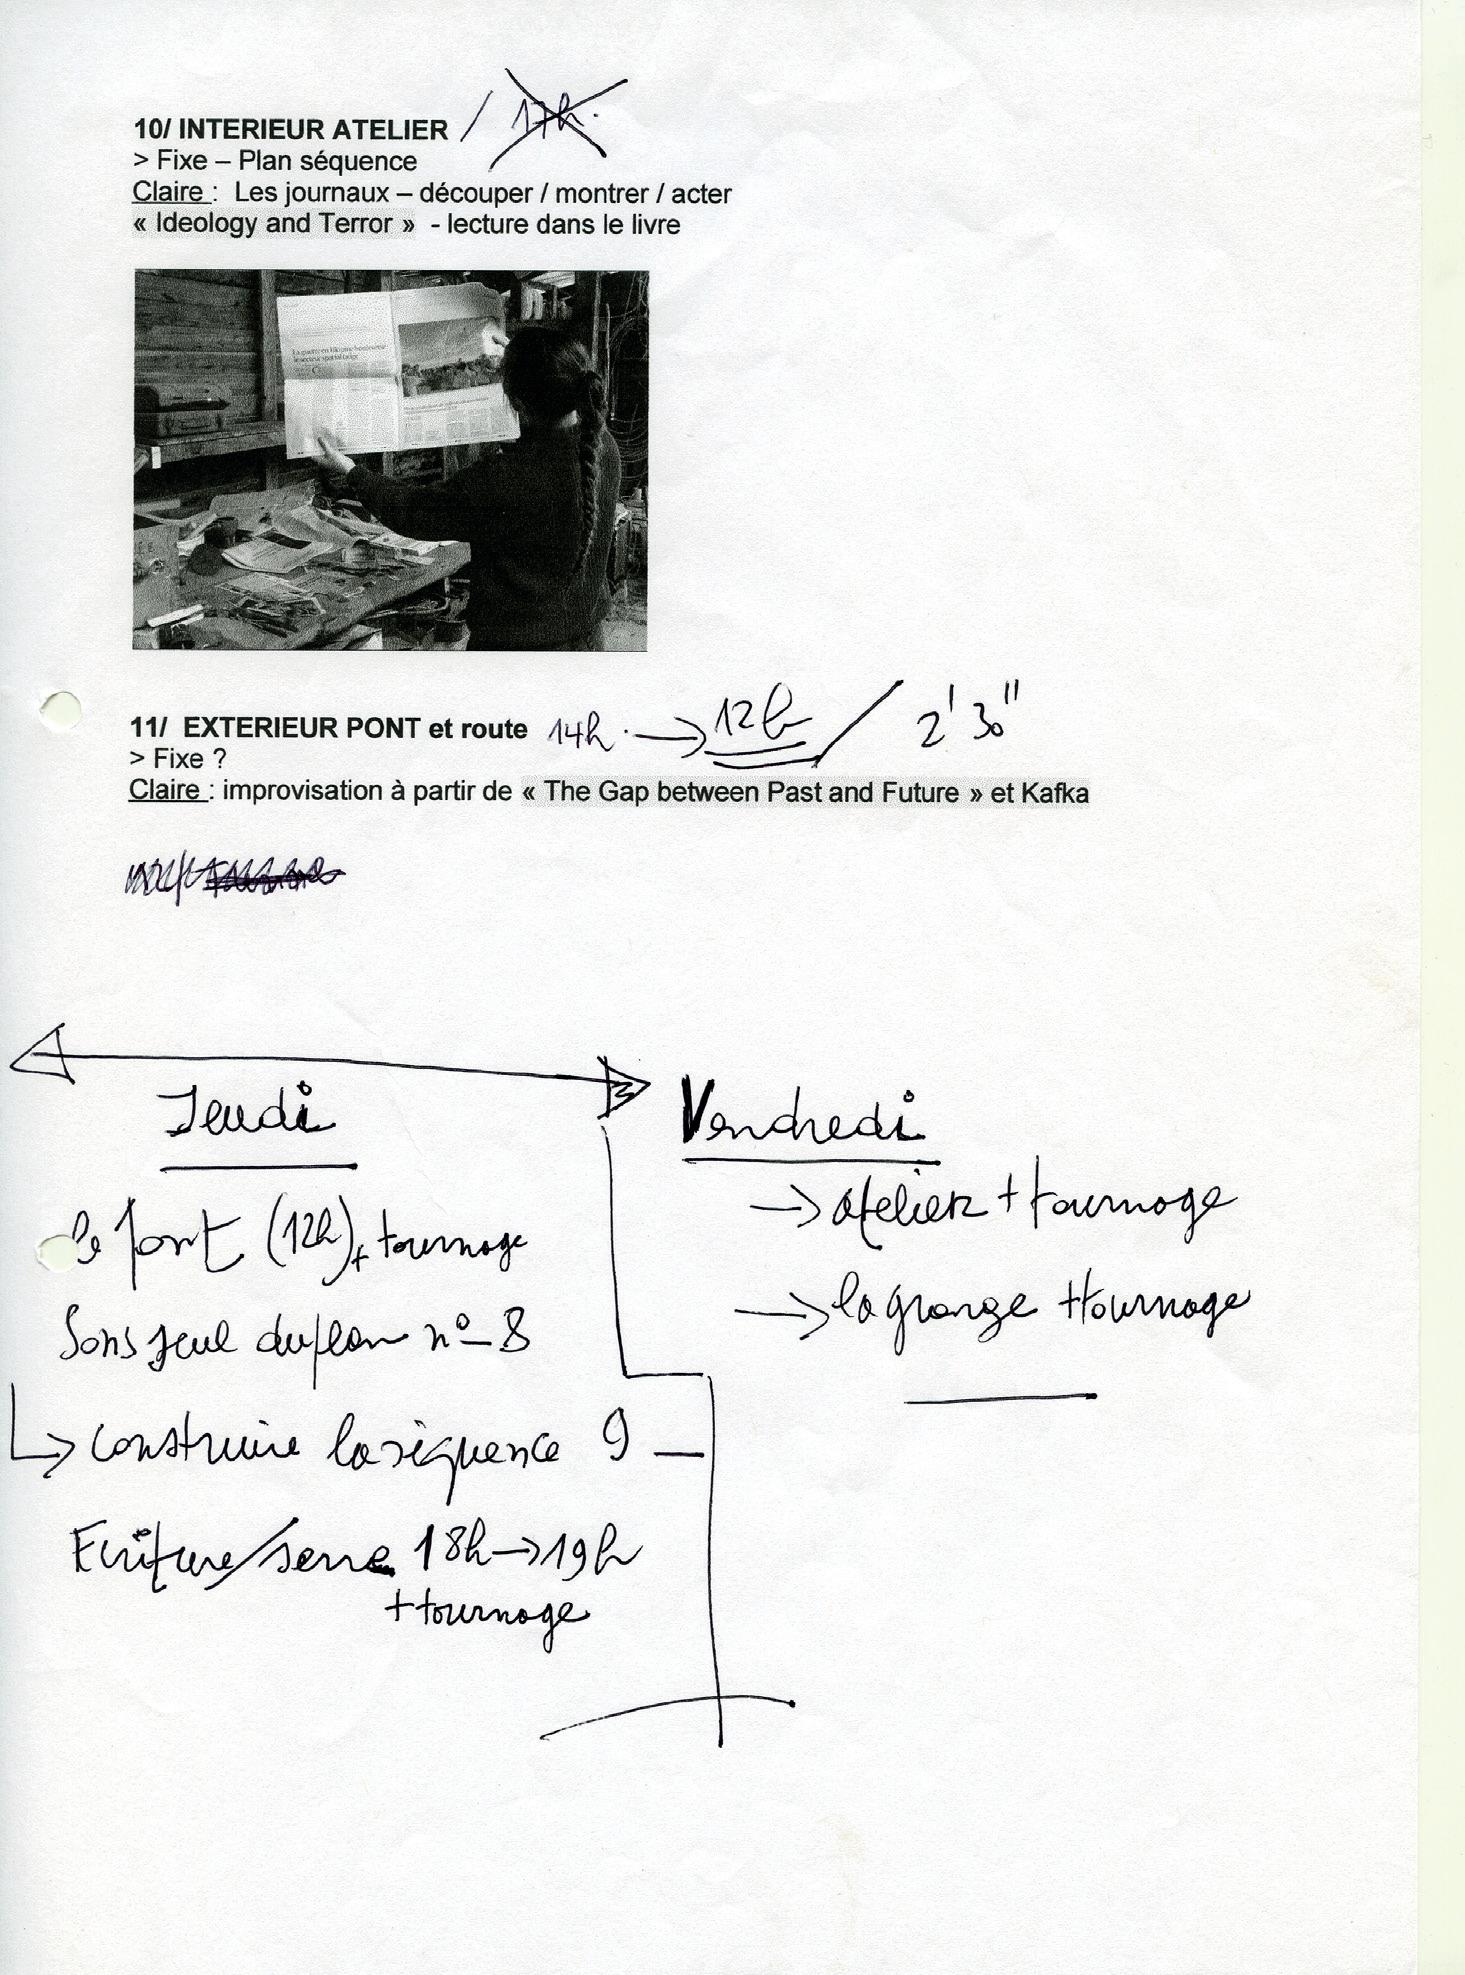 10/ INTERIEUR ATELIER / 17h.
> Fixe – Plan séquence
Claire : Les journaux – découper / montrer / acter
« Ideology and Terror » - lecture dans le livre
La guerre en Ukraine bouleverse
le secteur spatial belge
11/ EXTERIEUR PONT et route 14h. → 12h / 2' 30''
> Fixe ?
Claire : improvisation à partir de « The Gap between Past and Future » et Kafka
Jeudi
le pont (12h) + tournage
Sons seul du plan n° 8
↳ construire la séquence 9 —
Ecriture/serre 18h → 19h
+ tournage
Vendredi
→ atelier + tournage
→ la grange + tournage